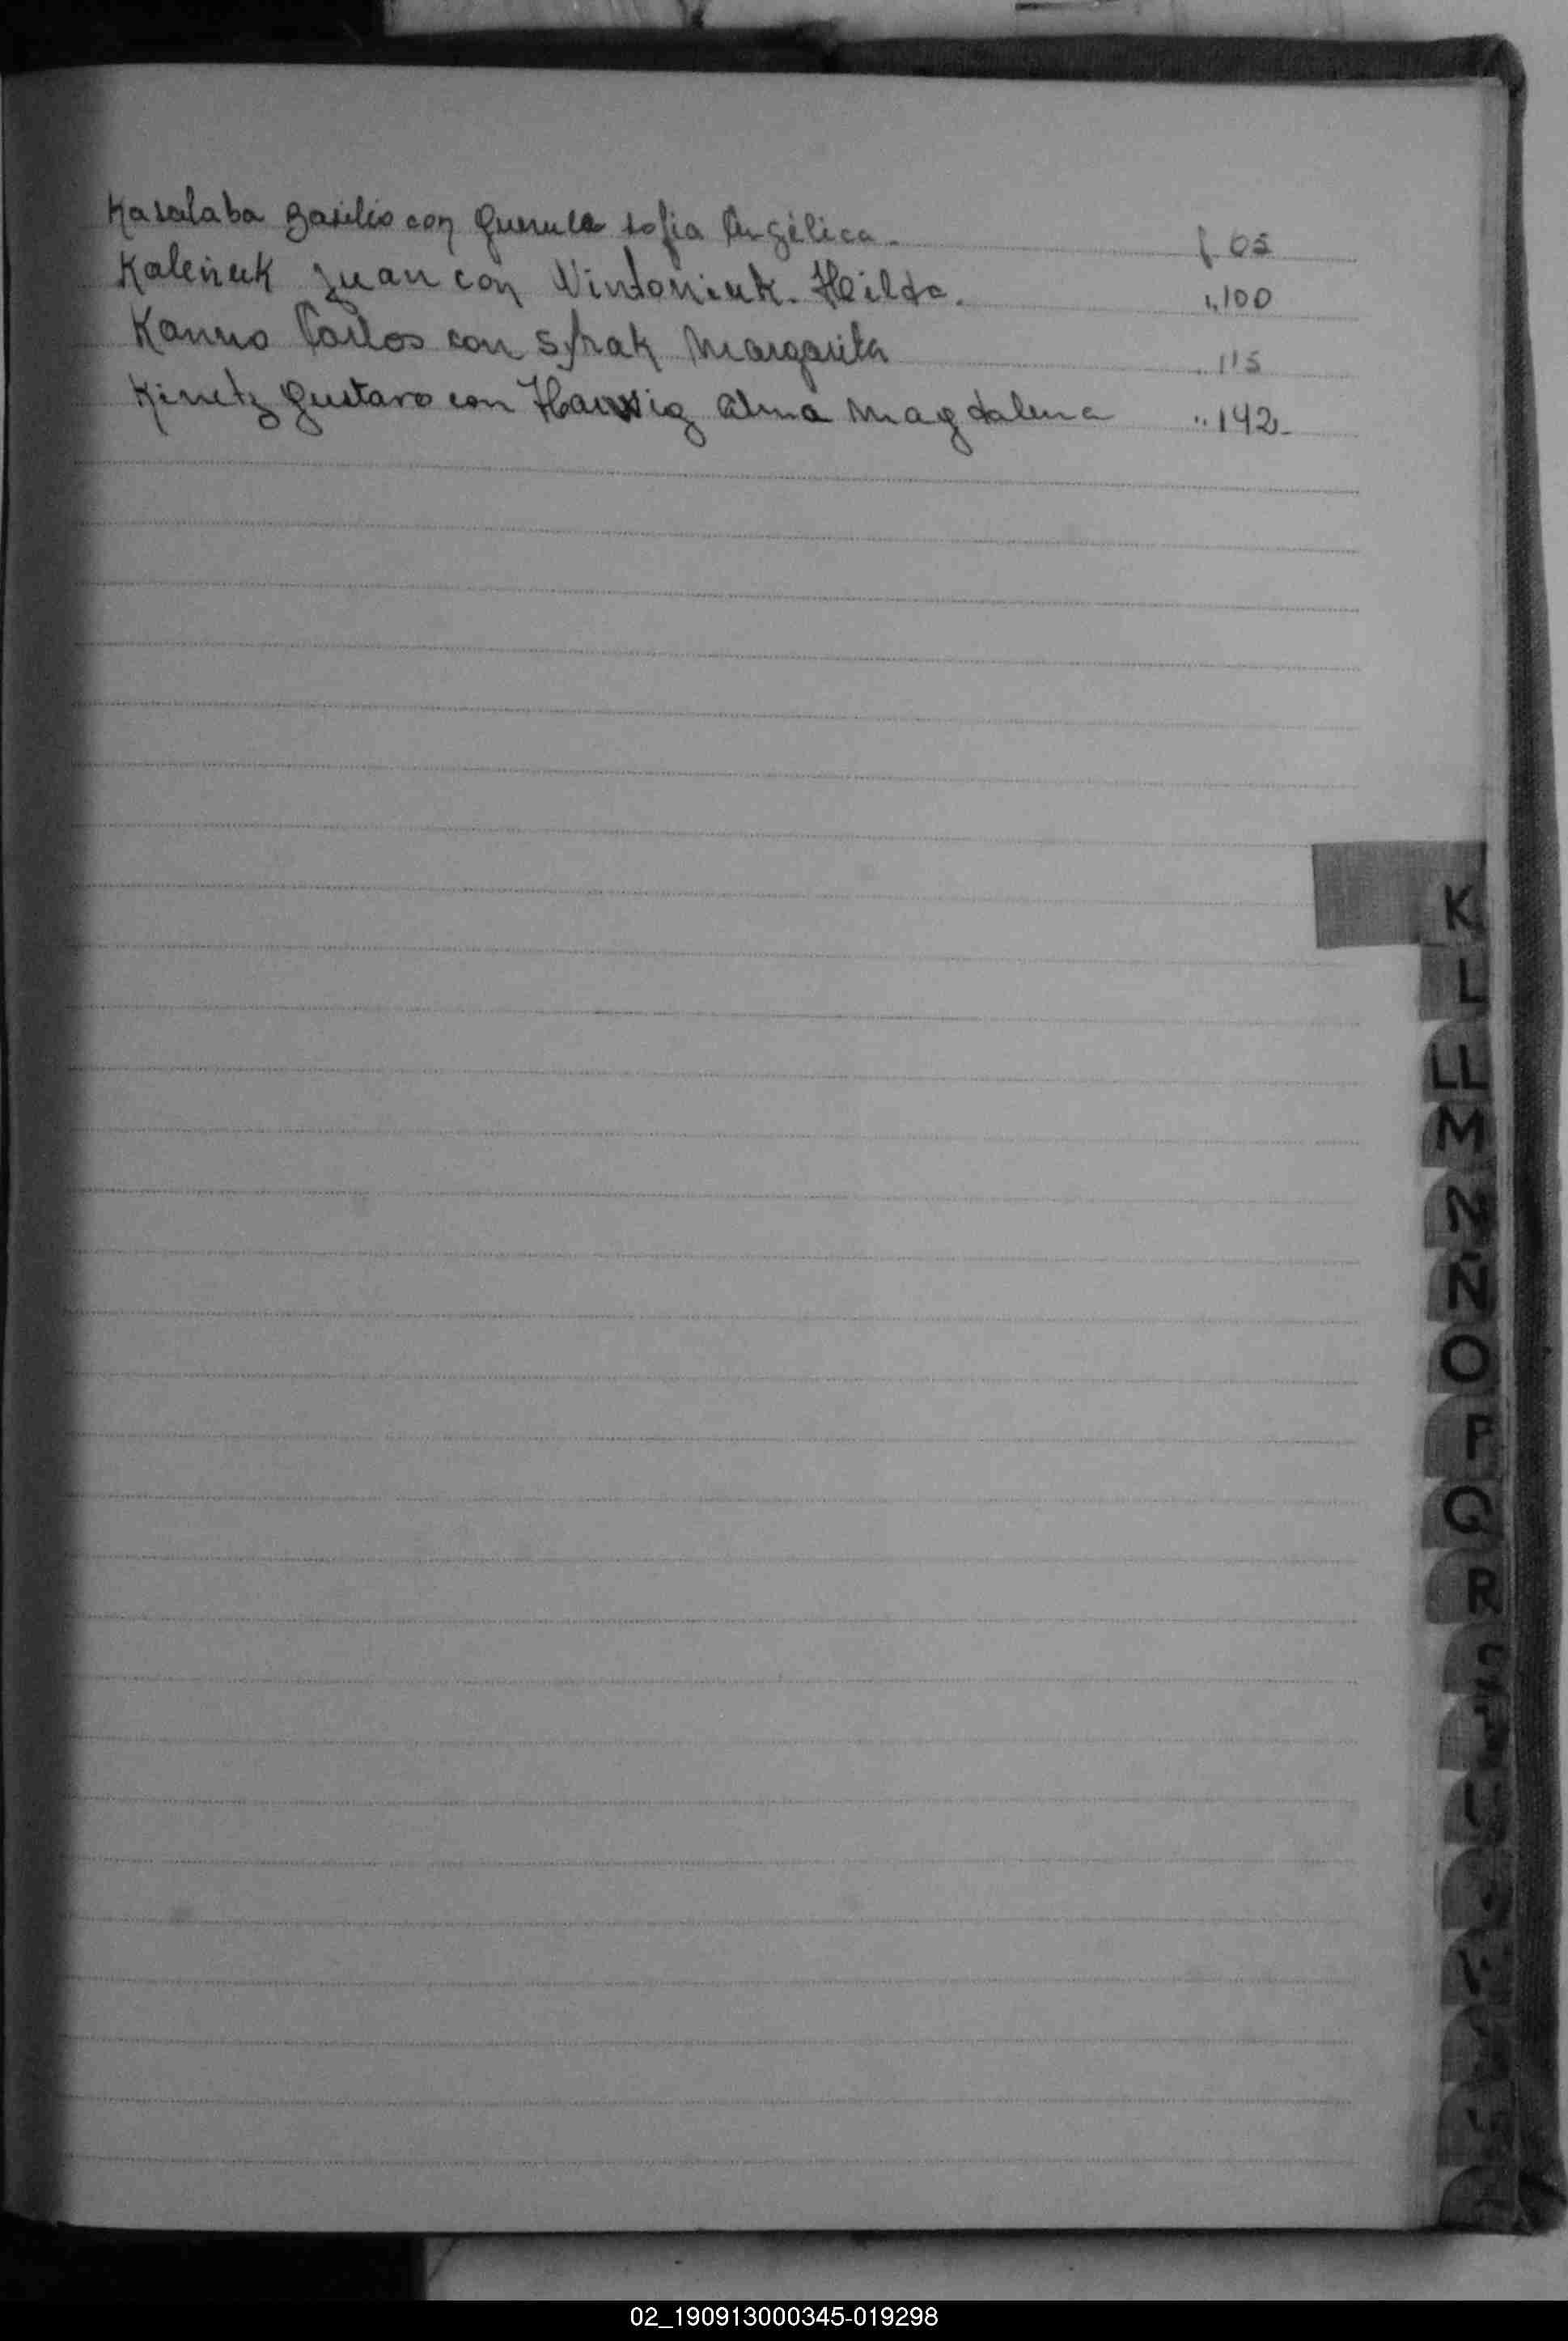 Kasalaba Basilio con Querula Sofia Angélica. f. 65
Kaleñuk Juan con Vintoniuk. Hilda. ,,100
Carlos con Margarita ,,115
Kinetz Gustavo con Harwig Alma Magdalena ,,142-
K
L
LL
M
N
Ñ
O
P
Q
R
02_190913000345-019298